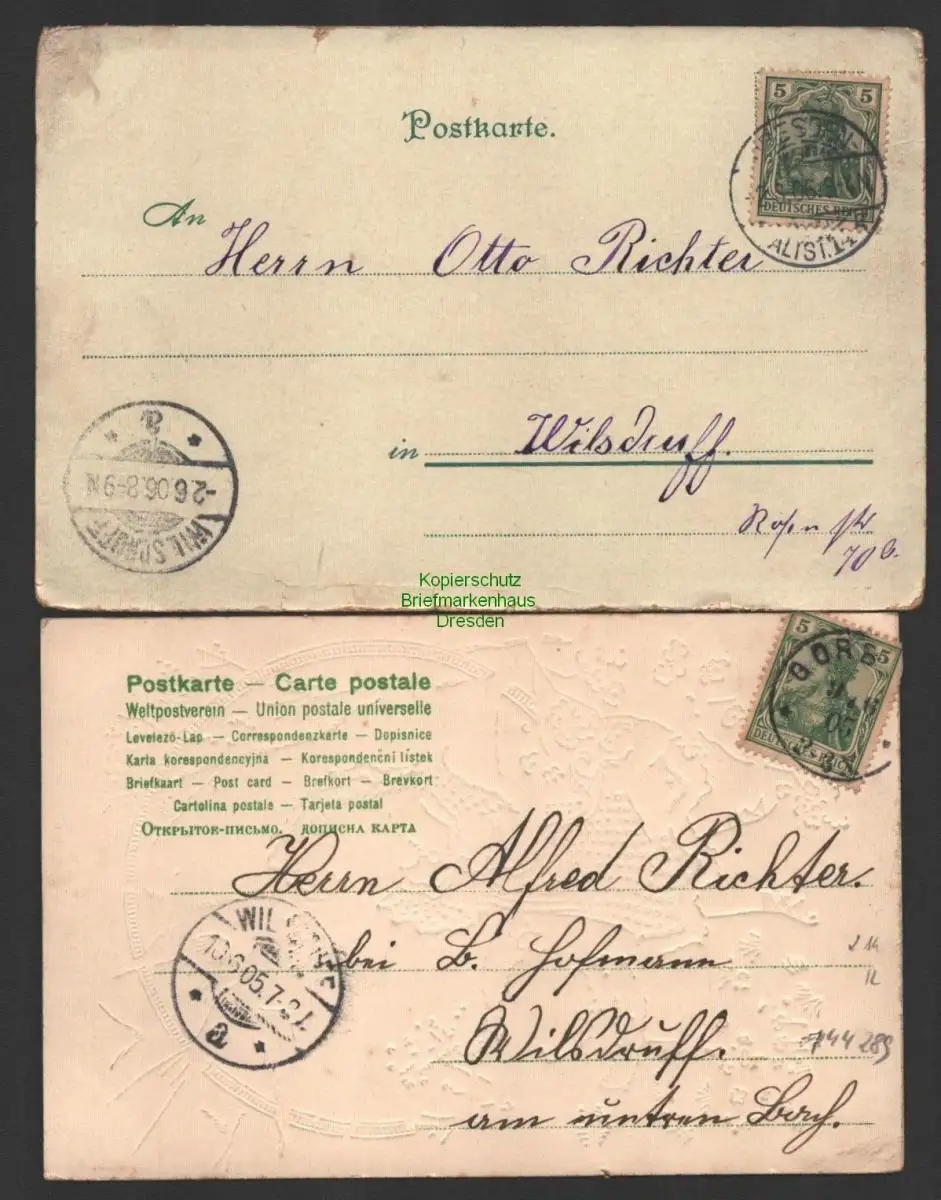 Postkarte.
5 5
DEUTSCHES REICH
ALTST. 14
An Herrn Otto Richter
in Wilsdruff.
70 b.
-2.6.06.8-9N
WILSDRUFF
Kopierschutz
Briefmarkenhaus
Dresden
5 5
DEUTSCHES REICH
Postkarte — Carte postale
Weltpostverein — Union postale universelle
Levelező-Lap — Correspondenzkarte — Dopisnice
Karta korespondencyjna — Korespondenční lístek
Briefkaart — Post card — Brefkort — Brevkort
Cartolina postale — Tarjeta postal
Открытое-письмо. дописна карта
Herrn Alfred Richter.
bei B. Hofmann
Wilsdruff.
am untren Bach.
10.6.05.7-8
44 289